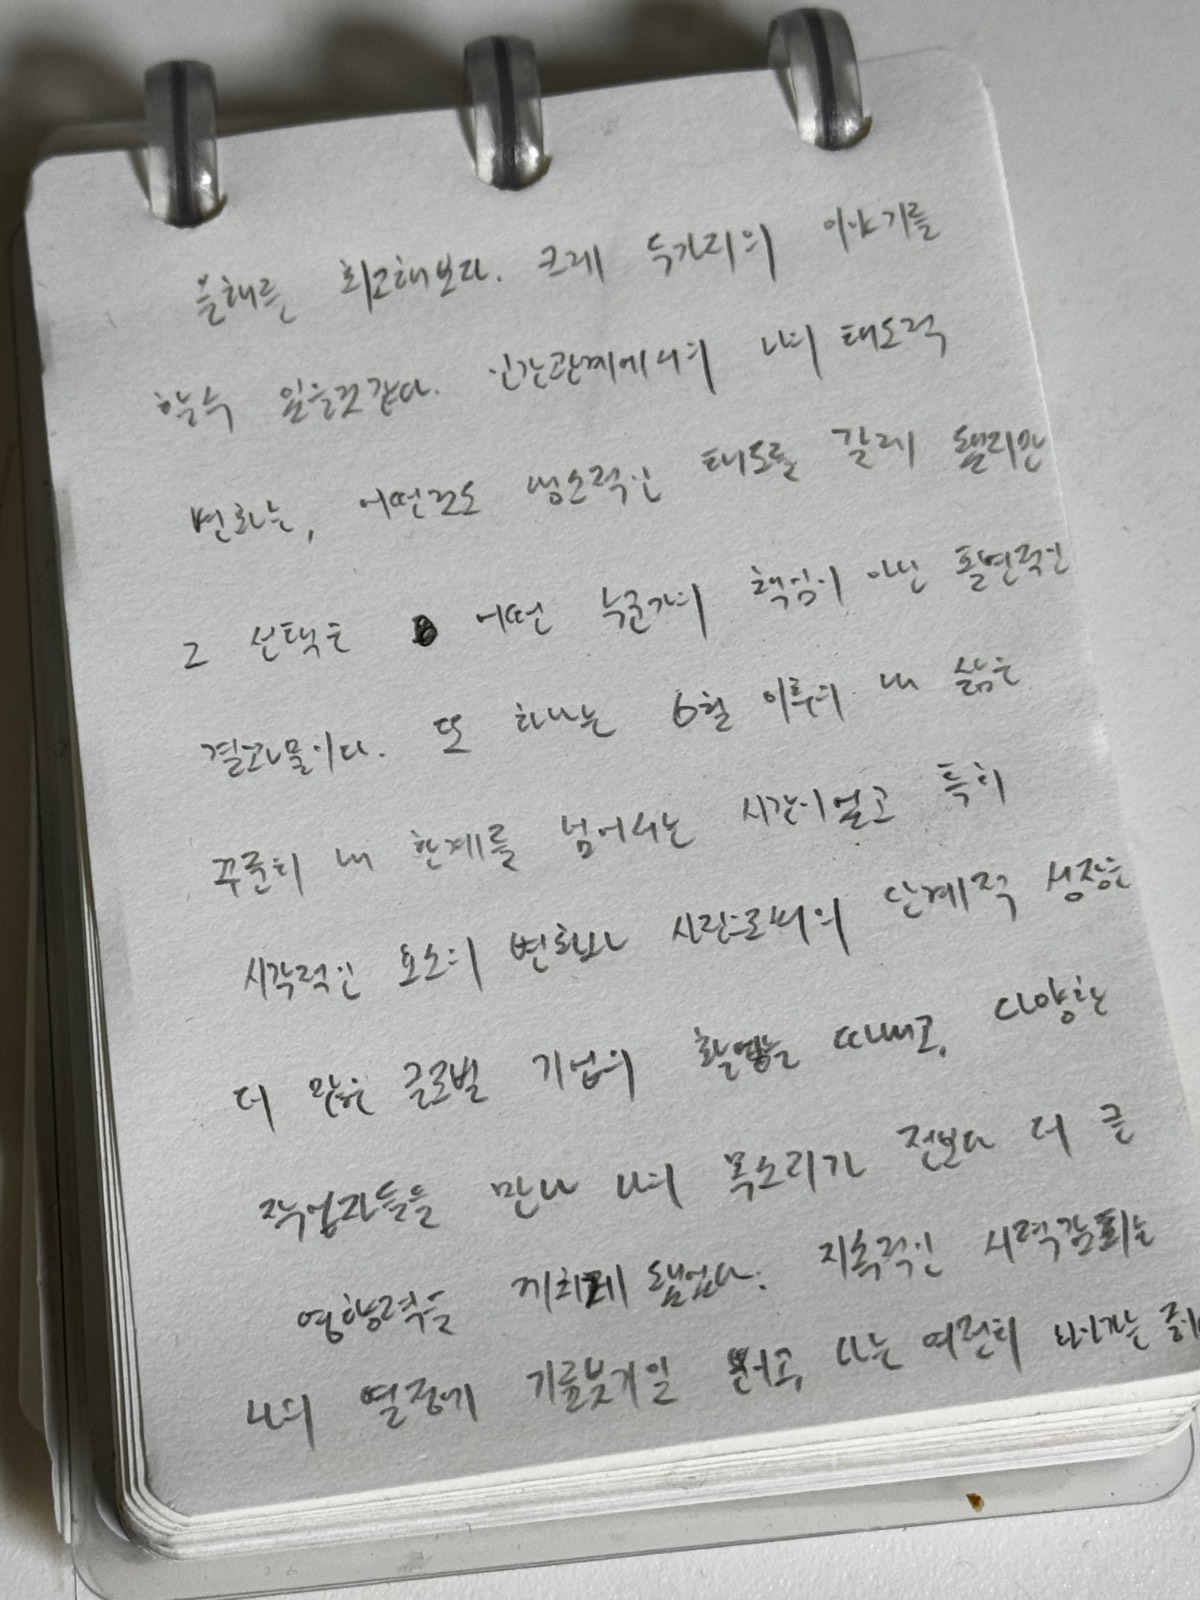 올해를 회고해보다. 크게 두가지의 이야기를
할수 있을것같다. 인간관계에서의 나의 태도적
변화는, 어떤로도 생소적인 태도를 갈레 됐지만
그 선택은 어떤 누군가의 책임이 아닌 필연적인
결과물이다. 또 하나는 6월 이후의 내 삶은
꾸준히 내 한계를 넘어서는 시간이였고 특히
시각적인 요소의 변화와 사람으로써의 단계적 성장은
더 많은 글로벌 기업의 활영을 따내고, 다양한
작업자들을 만나 나의 목소리가 전보다 더 큰
영향력을 끼치게 됐었다. 지속적인 시력감퇴는
나의 열정에 기름붓기일 뿐이고, 나는 여전히 나아가는 중이